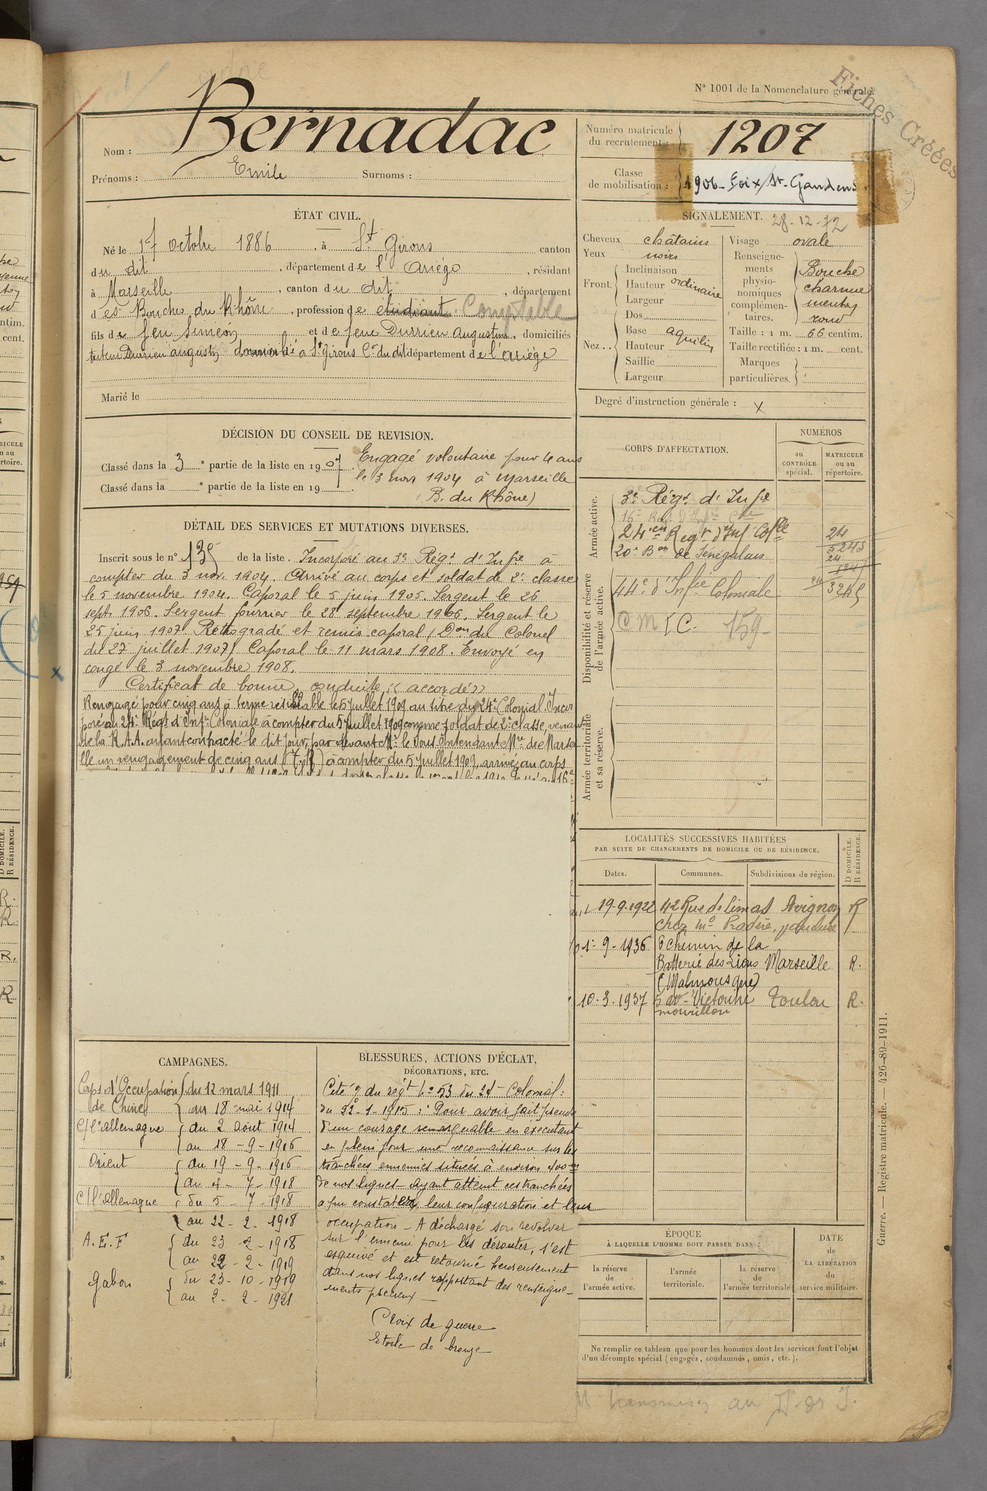 N° 1001 de la Nomenclature générale.
Fiches Créées
Nom : Bernadac
Prénoms : Emile Surnoms :
Numéro matricule du recrutement : 1207
Classe de mobilisation : 1906 - Foix/St-Gaudens
28-12-72
ÉTAT CIVIL.
Né le 17 octobre 1886, à St Girons canton
du dit, département de l'Ariège, résidant
à Marseille, canton du dit, département
des Bouches du Rhône, profession de étudiant. Comptable
fils de feu Siméon et de feue Durrieu Augustine, domiciliés
à St Girons Con du dit département de l'Ariège
Marié le
SIGNALEMENT.
Cheveux châtains
Yeux noirs
Front Inclinaison
Hauteur ordinaire
Largeur
Nez Dos
Base aquilin
Hauteur
Saillie
Largeur
Visage ovale
Renseignements physionomiques complémentaires. Bouche charnue menton rond
Taille : 1 m. 66 centim.
Taille rectifiée : 1 m. cent.
Marques particulières.
Degré d'instruction générale : x
DÉCISION DU CONSEIL DE REVISION.
Classé dans la 3e partie de la liste en 1907.
Classé dans la e partie de la liste en 19
Engagé volontaire pour 4 ans
le 3 nov 1904 à Marseille
(B. du Rhône)
DÉTAIL DES SERVICES ET MUTATIONS DIVERSES.
Inscrit sous le n° 135 de la liste. Incorporé au 3e Régt d'Infie à
compter du 3 nov. 1904. Arrivé au corps et soldat de 2e classe
le 5 novembre 1904. Caporal le 5 juin 1905. Sergent le 26
sept. 1906. Sergent fourrier le 28 septembre 1906. Sergent le
25 juin 1907. Rétrogradé et remis caporal (Don du Colonel
du 27 juillet 1907). Caporal le 11 mars 1908. Envoyé en
congé le 3 novembre 1908.
Certificat de bonne conduite "accordé"
Rengagé pour cinq ans à terme résiliable le 5 juillet 1909 au titre du 24e Colonial. Incor
poré au 24e Régt d'Infie Coloniale à compter du 5 juillet 1909 comme soldat de 2e classe, venant
de la R.A.A. ayant contracté le dit jour, par devant Mr le Sous Intendant Mre de Marse
lle un rengagement de cinq ans à compter du 5 juillet 1909, arrivé au corps
CORPS D'AFFECTATION.
NUMÉROS
au CONTRÔLE spécial.
MATRICULE ou au répertoire.
Armée active.
3e Régt d'Infie
24e Régt d'Inf Colle
20e Bon de Sénégalais
24
5243
Disponibilité et réserve de l'armée active.
44e d'Infie Coloniale
C M I C. 159
Armée territoriale et sa réserve.
LOCALITÉS SUCCESSIVES HABITÉES
PAR SUITE DE CHANGEMENTS DE DOMICILE OU DE RÉSIDENCE.
Dates. Communes. Subdivisions de région. D DOMICILE. R RÉSIDENCE.
19-9-1922 42 Rue de limas Avignon R
chez Me
1-9-1936 6 Chemin de la
Batterie des Lions Marseille R.
(Malmousque)
10-3-1937 Victoire Toulon R.
mourillon
CAMPAGNES.
Corps d'Occupation de Chine du 12 mars 1911
au 18 mai 1914
C/ l'allemagne du 2 aout 1914
au 18-9-1916
Orient du 19-9-1916
au 4-7-1918
C/ l'allemagne du 5-7-1918
au 22-2-1918
A.E.F du 23-2-1918
au 22-2-1919
Gabon du 23-10-1919
au 2-2-1921
BLESSURES, ACTIONS D'ÉCLAT,
DÉCORATIONS, ETC.
Cité O. du régt n° 53 du 24e Colonial
du 1915 : Pour avoir fait preuve
d'un courage remarquable en exécutant
en plein jour une reconnaissance sur les
tranchées ennemies situées à environ
de nos lignes ayant atteint ces tranchées
a pu constater leur configuration et leur
occupation - A déchargé son revolver
sur l'ennemi pour les dérouter, s'est
esquivé et est retourné heureusement
dans nos lignes rapportant des renseigne-
ments précieux
Croix de guerre
Etoile de bronze
ÉPOQUE
À LAQUELLE L'HOMME DOIT PASSER DANS :
la réserve de l'armée active.
l'armée territoriale.
la réserve de l'armée territoriale.
DATE de LA LIBÉRATION du service militaire.
Ne remplir ce tableau que pour les hommes dont les services font l'objet
d'un décompte spécial (engagés, condamnés, omis, etc.).
Guerre. — Registre matricule. — 426-89-1911.